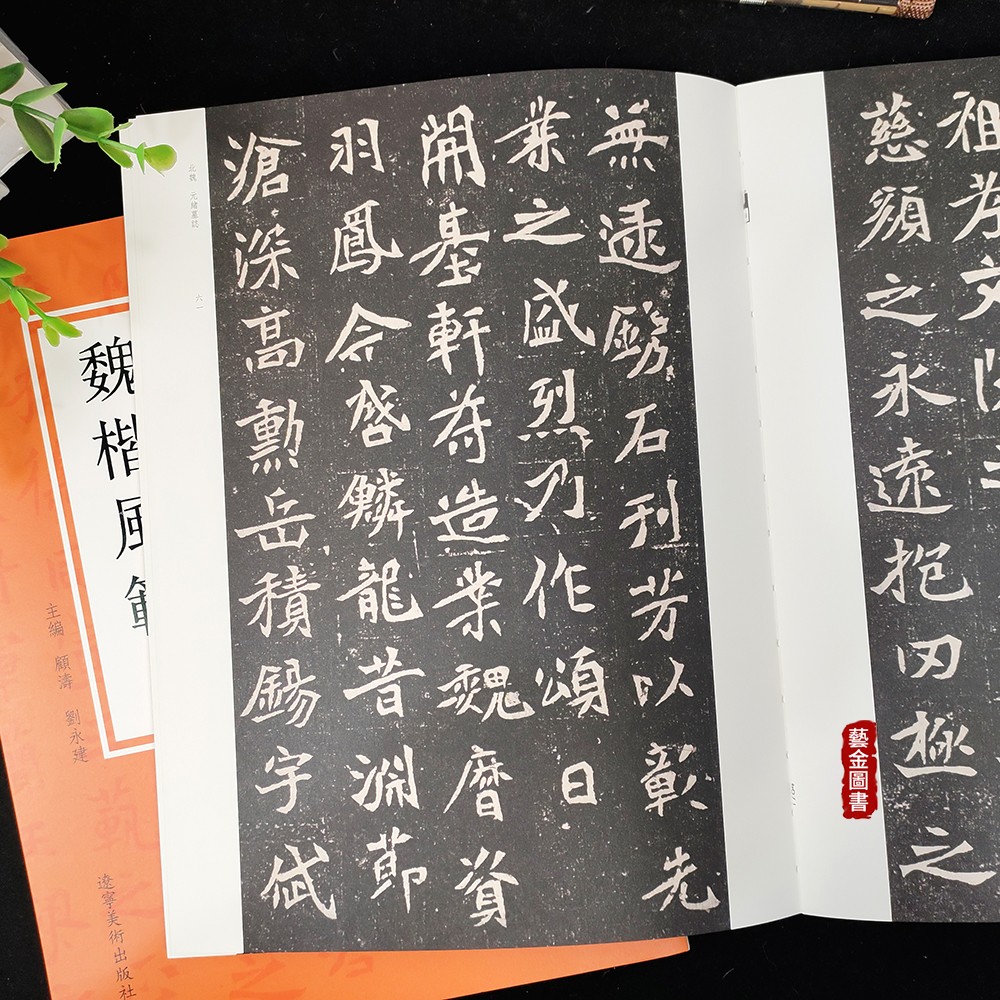 祖
慈顏之永遠抱罔極之
無逮鐫石刊芳以彰先
業之盛烈乃作頌曰
開基軒苻造業魏曆資
羽鳳今啓鱗龍昔淵節
滄深高勳岳積錫宇
北魏 元緒墓誌
六一
藝金圖書
魏楷風範
主编 顧濤 劉永建
遼寧美術出版社